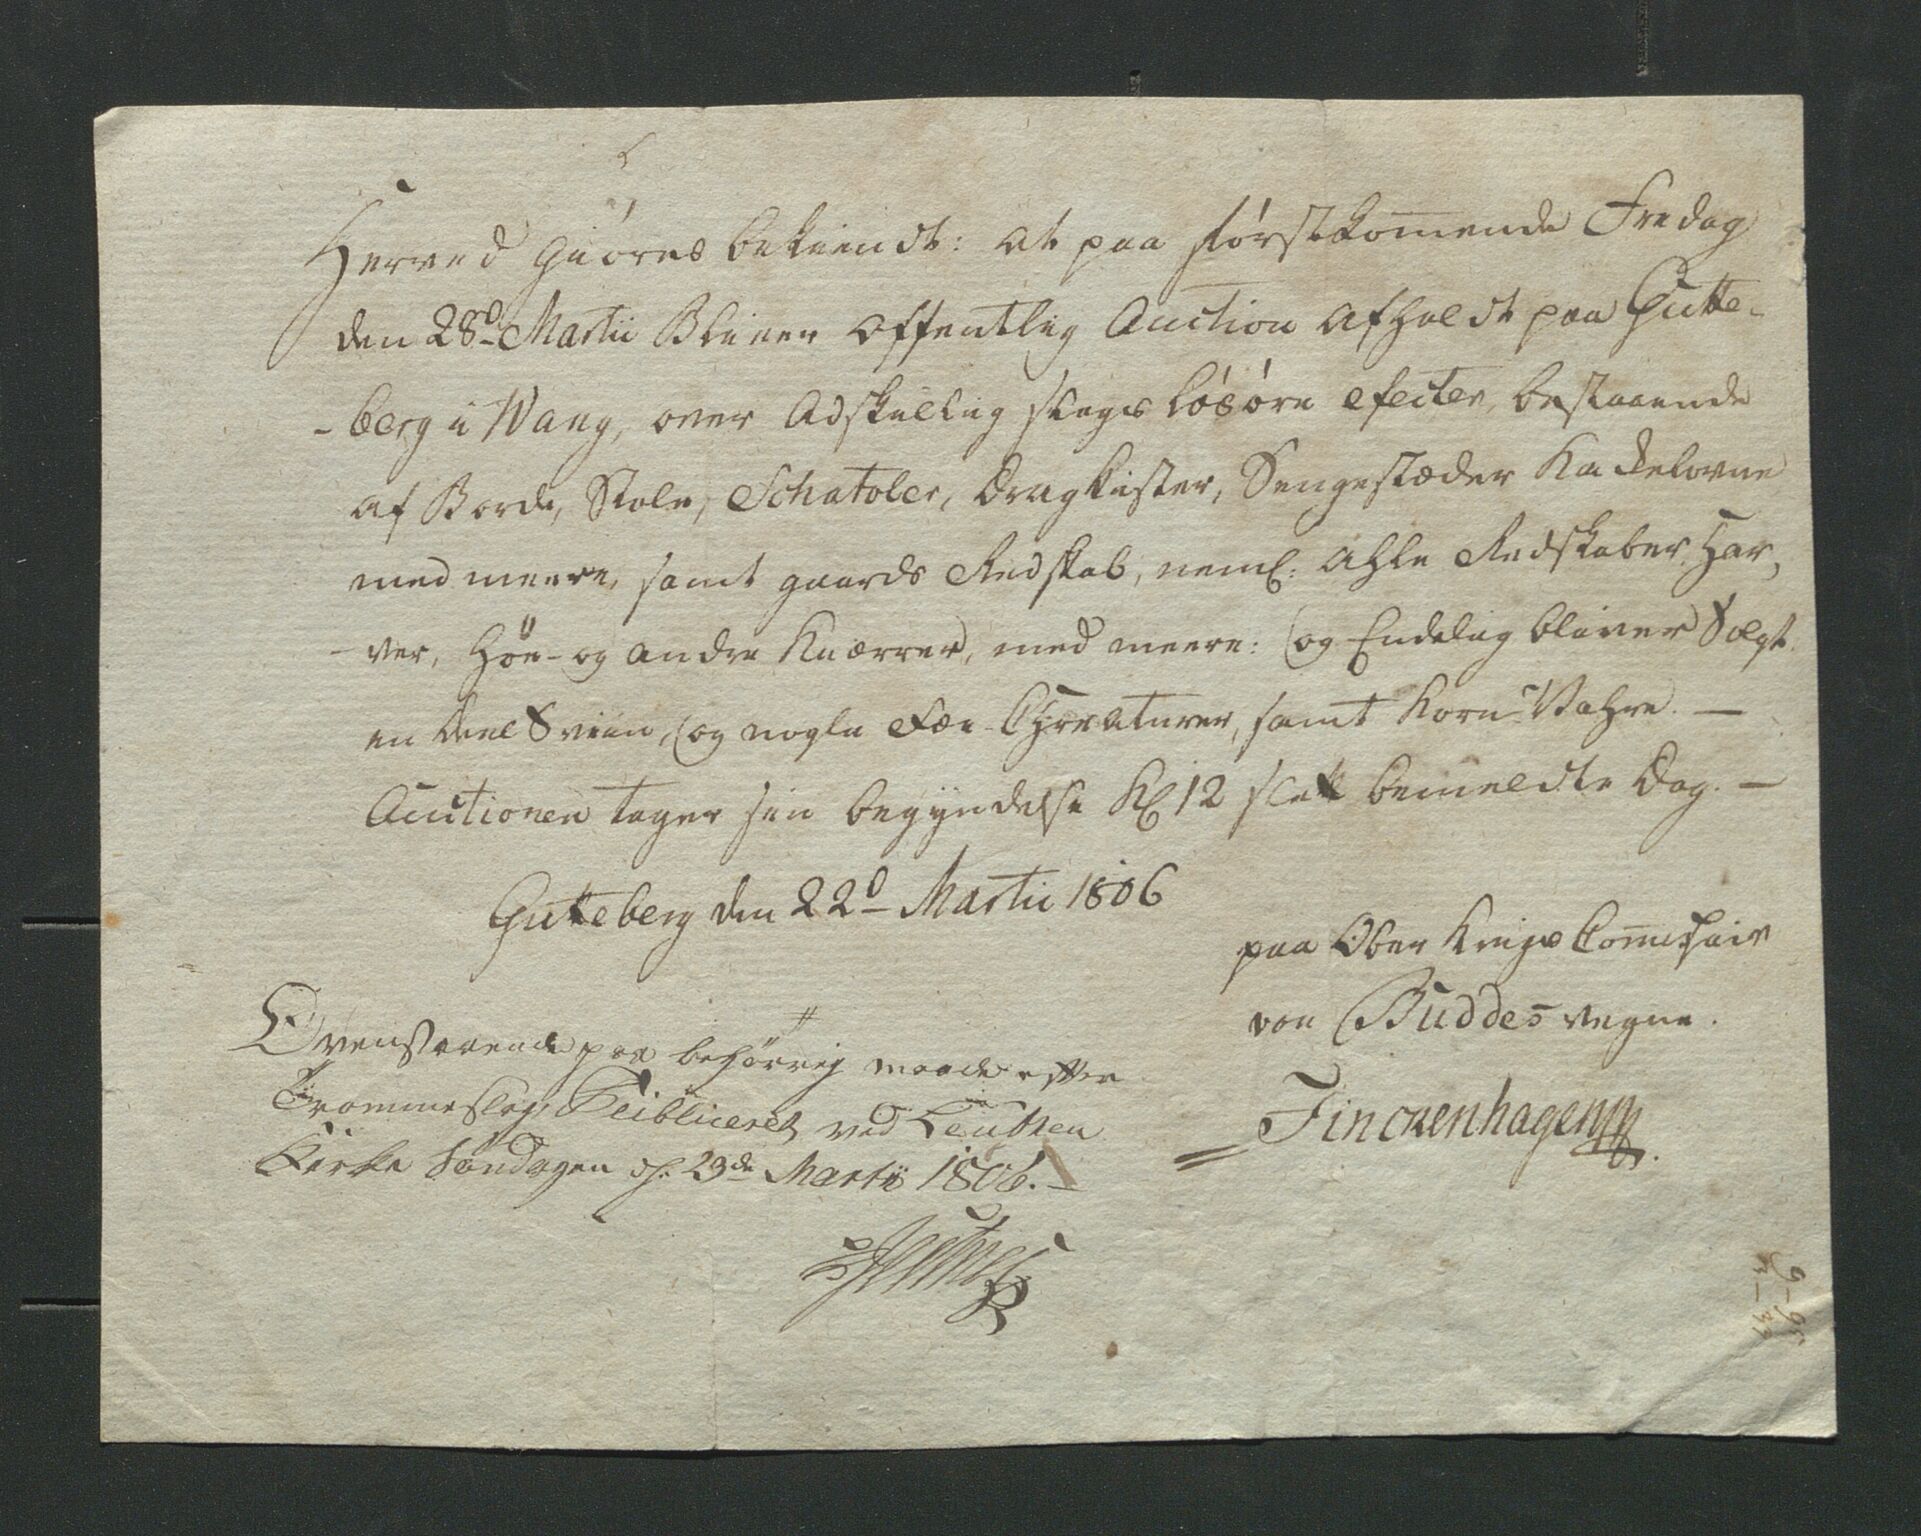 Herved giøres bekiendt: at paa førstkom̄ende Fredag
den 28d Martii Bliver offentlig Auction afholdt paa Gutte-
-berg i Wang, over Adskillig slags løsøre efecter, bestaaende
af Borde, Stole, Schatoler, Dragkister, Sengestæder Kackelovne
med meere, samt gaards Redskab, neml: Ahle Redskaber, Har-
-ver, Höe- og andre Kiærrer, med meere: og Endelig bliver Solgt
en deel Sviin, og nogle Fæe-Chreaturer, samt Korn-Vahre. —
Auctionen tager sin begyndelse Kl 12 slett bemeldte Dag. —
Gutteberg den 22d Martii 1806
paa Ober Krigs Com̄issair
von Buddes vegne.
Finckenhagen
Ovenstaaende paa behörrig maade efter
Trommeslag Publiceret ved
Kirke Søndagen d: 23de Martii 1806. —